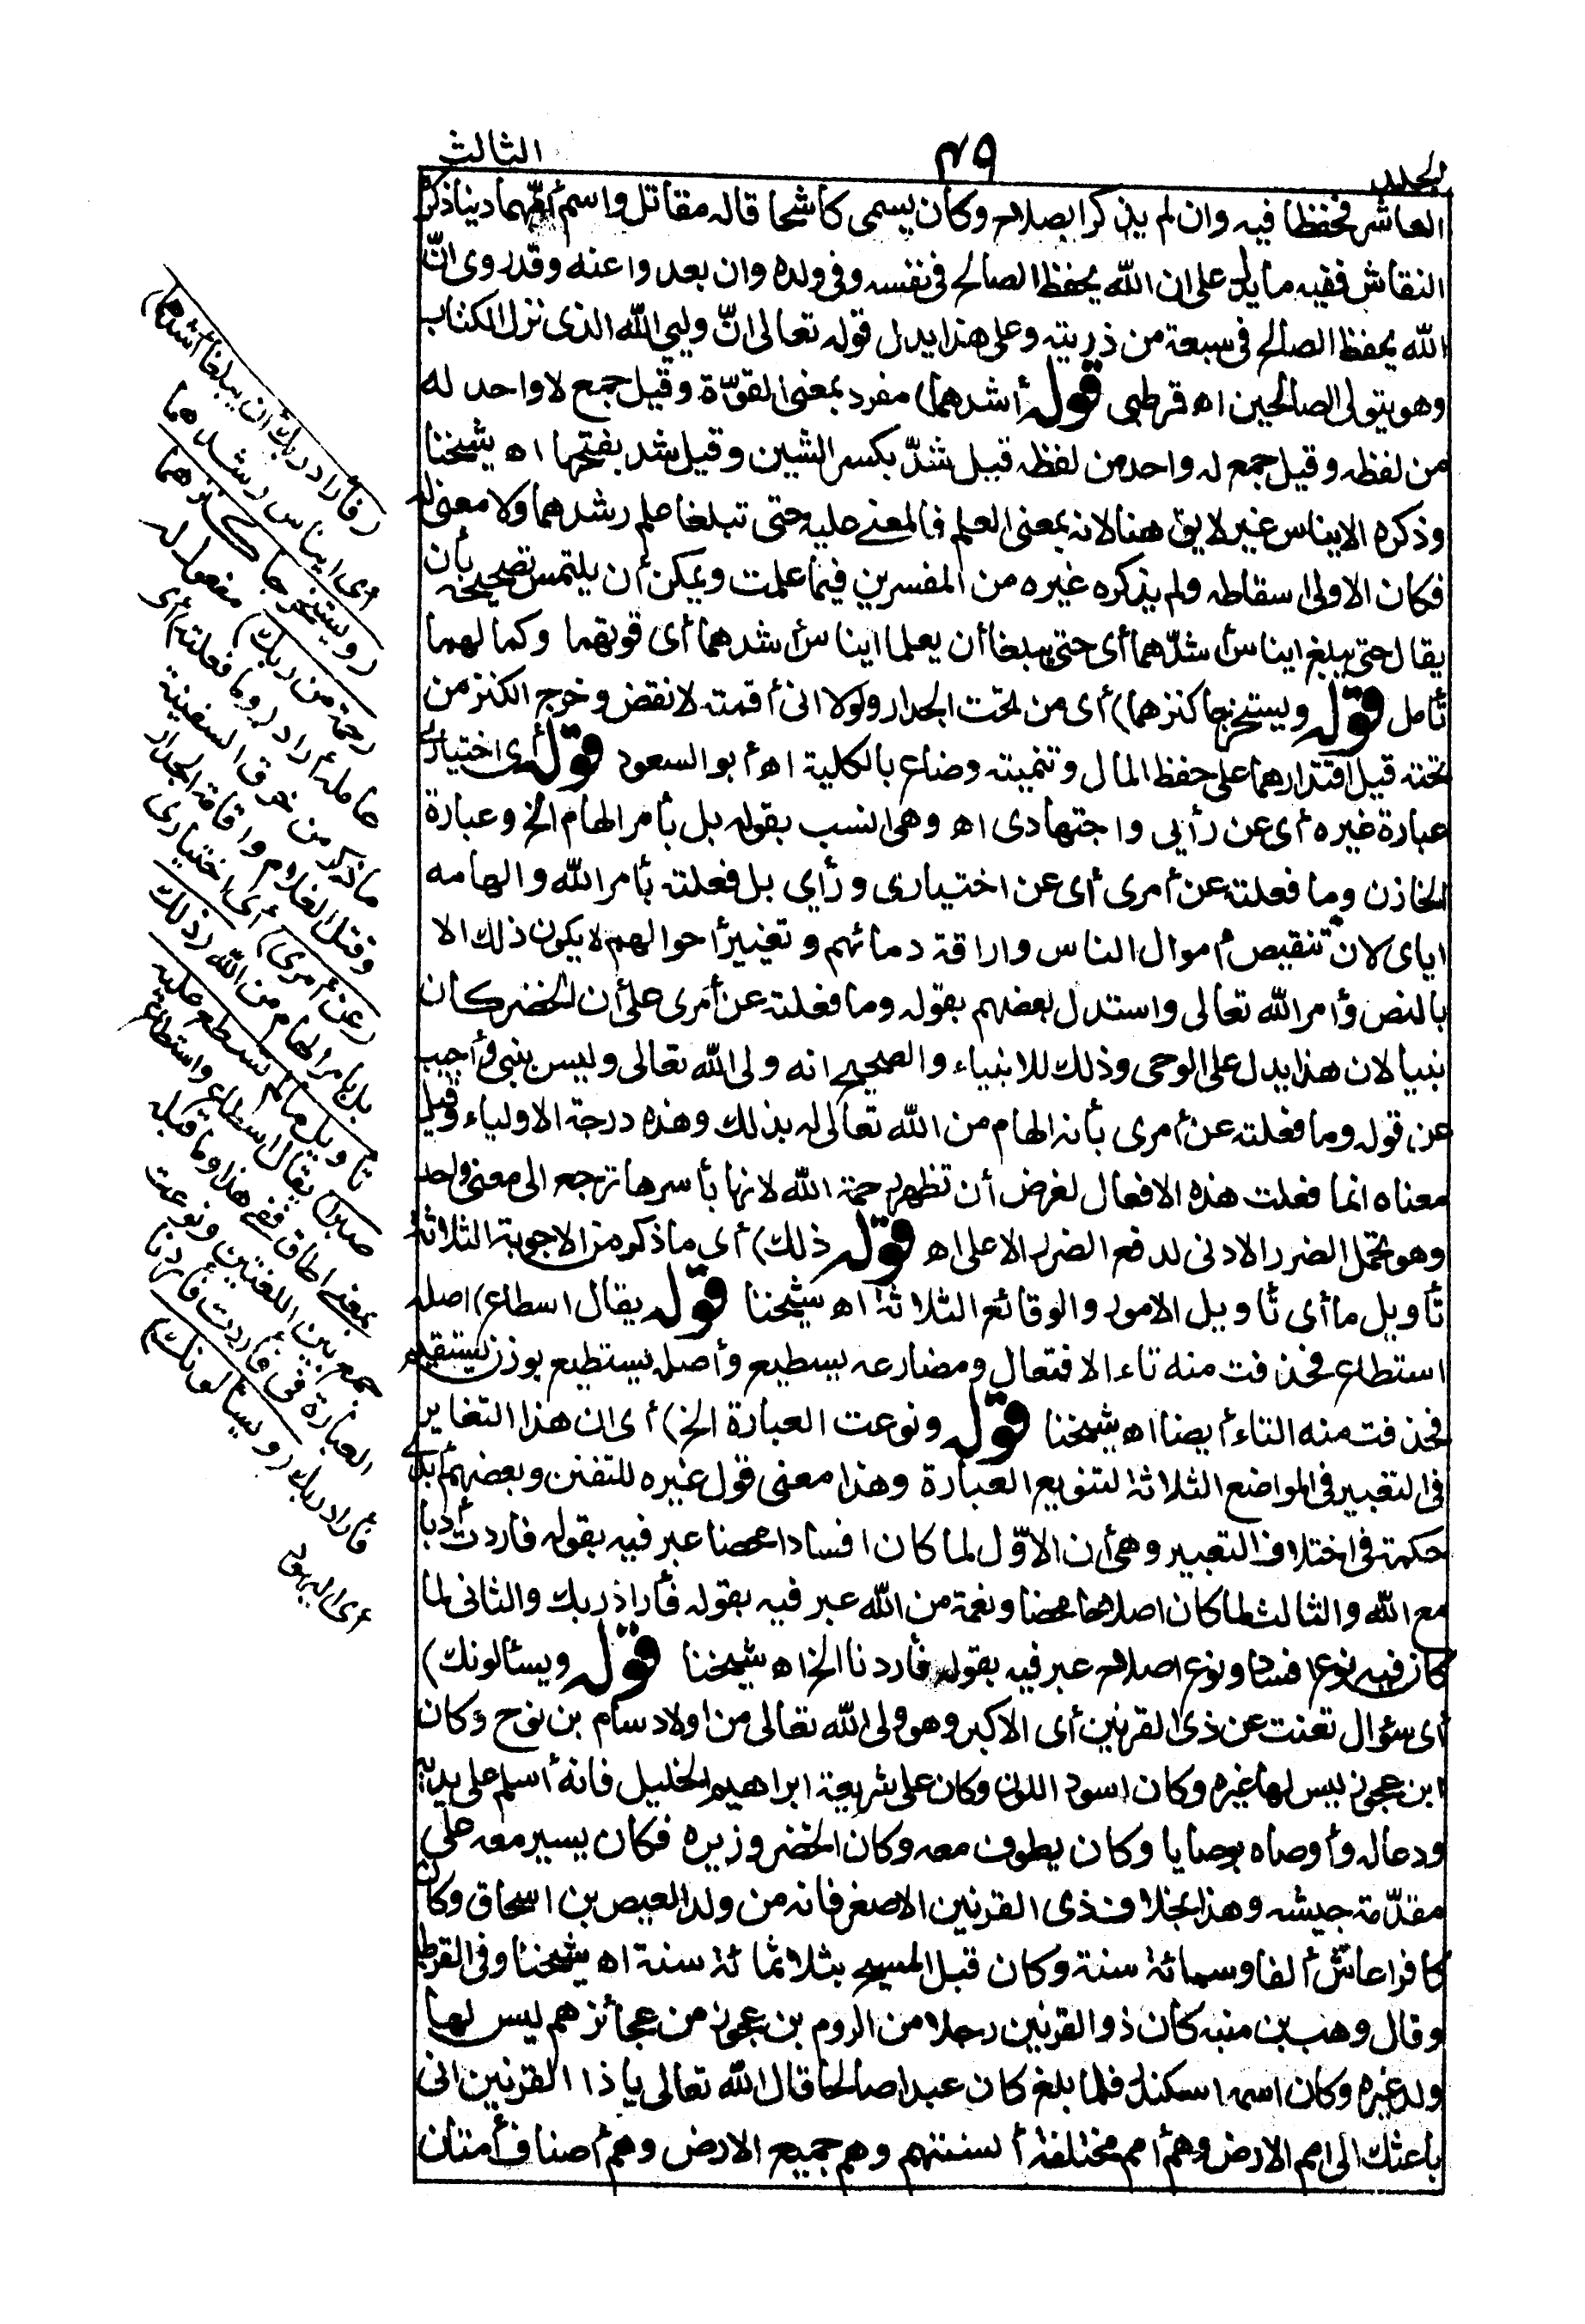 المجلد
٤٩
الثالث
العاشر فحفظا فيه وان لم يذكرا بصلاح وكان يسمى كاشحا قاله مقاتل واسم أمّهما دينا ذكره
النقاش ففيه ما يدل على ان الله يحفظ الصالح فى نفسه وفى ولده وان بعدوا عنه وقد روى انّ
الله يحفظ الصالح فى سبعة من ذريته وعلى هذا يدل قوله تعالى انّ وليي الله الذى نزل الكتاب
وهو يتولى الصالحين اه قرطبى قوله أشدهما) مفرد بمعنى القوّة وقيل جمع لا واحد له
من لفظه وقيل جمع له واحد من لفظه قيل شدّ بكسر الشين وقيل شد بفتحها اه شيخنا
وذكره الايناس غير لايق هنا لانه بمعنى العلم فالمعنى عليه حتى تبلغا علم رشدهما ولا معنى له
فكان الاولى اسقاطه ولم يذكره غيره من المفسرين فيما علمت ويمكن أن يلتمس تصحيحه بأن
يقال حتى يبلغ ايناس أشدّهما أى حتى يبلغا أن يعلما ايناس أشدهما أى قوتهما وكمالهما
تأمل قوله ويستخرجا كنزهما) أى من تحت الجدار ولولا انى أقمته لانقض وخرج الكنز من
تحته قبل اقتدارهما على حفظ المال وتنميته وضاع بالكلية اه أبو السعود قوله أى اختيارى
عبارة غيره أى عن رأيى واجتهادى اه وهى انسب بقوله بل بأمر الهام الخ وعبارة
الخازن وما فعلته عن أمرى أى عن اختيارى ورأي بل فعلته بأمر الله والهامه
اياى لان تنقيص أموال الناس واراقة دمائهم وتغيير أحوالهم لا يكون ذلك الا
بالنص وأمر الله تعالى واستدل بعضهم بقوله وما فعلته عن أمرى على أن الخضر كان
نبيا لان هذا يدل على الوحى وذلك للانبياء والصحيح انه ولى الله تعالى وليس بنبى وأجيب
عن قوله وما فعلته عن أمرى بأنه الهام من الله تعالى له بذلك وهذه درجة الاولياء وقيل
معناه انما فعلت هذه الافعال لغرض أن تظهر رحمة الله لانها بأسرها ترجع الى معنى واحد
وهو تحمل الضرر الادنى لدفع الضرر الاعلى اه قوله ذلك) أى ما ذكر من الاجوبة الثلاثة
تأويل ما أى تأويل الامور والوقائع الثلاثة اه شيخنا قوله يقال اسطاع) اصله
استطاع فحذفت منه تاء الافتعال ومضارعه يسطيع وأصله يستطيع بوزن يستقيم
فحذفت منه التاء أيضا اه شيخنا قوله ونوعت العبارة الخ) أى ان هذا التغاير
فى التعبير فى المواضع الثلاثة لتنويع العبارة وهذا معنى قول غيره للتفنن وبعضهم أبدى
حكمة فى اختلاف التعبير وهى أن الاوّل لما كان افسادا محضا عبر فيه بقوله فاردت أدبا
مع الله والثالث لما كان اصلاحا محضا ونعمة من الله عبر فيه بقوله فأراد ربك والثانى لما
كان فيه نوع افساد ونوع اصلاح عبر فيه بقوله فأردنا الخ اه شيخنا قوله ويسألونك)
أى سؤال تعنت عن ذى القرنين أى الاكبر وهو ولى الله تعالى من اولاد سام بن نوح وكان
ابن عجوز ليس لها غيره وكان اسود اللون وكان على شريعة ابراهيم الخليل فانه أسلم على يديه
ودعا له وأوصاه بوصايا وكان يطوف معه وكان الخضر وزيره فكان يسير معه على
مقدّمة جيشه وهذا بخلاف ذى القرنين الاصغر فانه من ولد العيص بن اسحاق وكان
كافرا عاش ألفا وسمائة سنة وكان قبل المسيح بثلاثمائة سنة اه شيخنا وفى القرطبى
وقال وهب بن منبه كان ذو القرنين رجلا من الروم بن عجوز من عجائزهم ليس لها
ولد غيره وكان اسمه اسكندر فلما بلغ كان عبدا صالحا قال الله تعالى يا ذا القرنين انى
باعثك الى امم الارض وهم أمم مختلفة ألسنتهم وهم جميع الارض وهم أصناف أمتان
(فأراد ربك أن يبلغا أشدهما)
أى ايناس رشدهما
(ويستخرجا كنزهما
رحمة من ربك) مفعول له
عامله أراد (وما فعلته) أى
ما ذكر من خرق السفينة
وقتل الغلام واقامة الجدار
(عن أمرى) أى اختيارى
بل بأمر الهام من الله (ذلك
تأويل ما لم تسطع عليه
صبرا) يقال اسطاع واستطاع
بمعنى اطاق ففى هذا وما قبله
جمع بين اللغتين ونوعت
العبارة فى فأردت فأردنا
فأراد ربك (ويسألونك)
أى اليهود